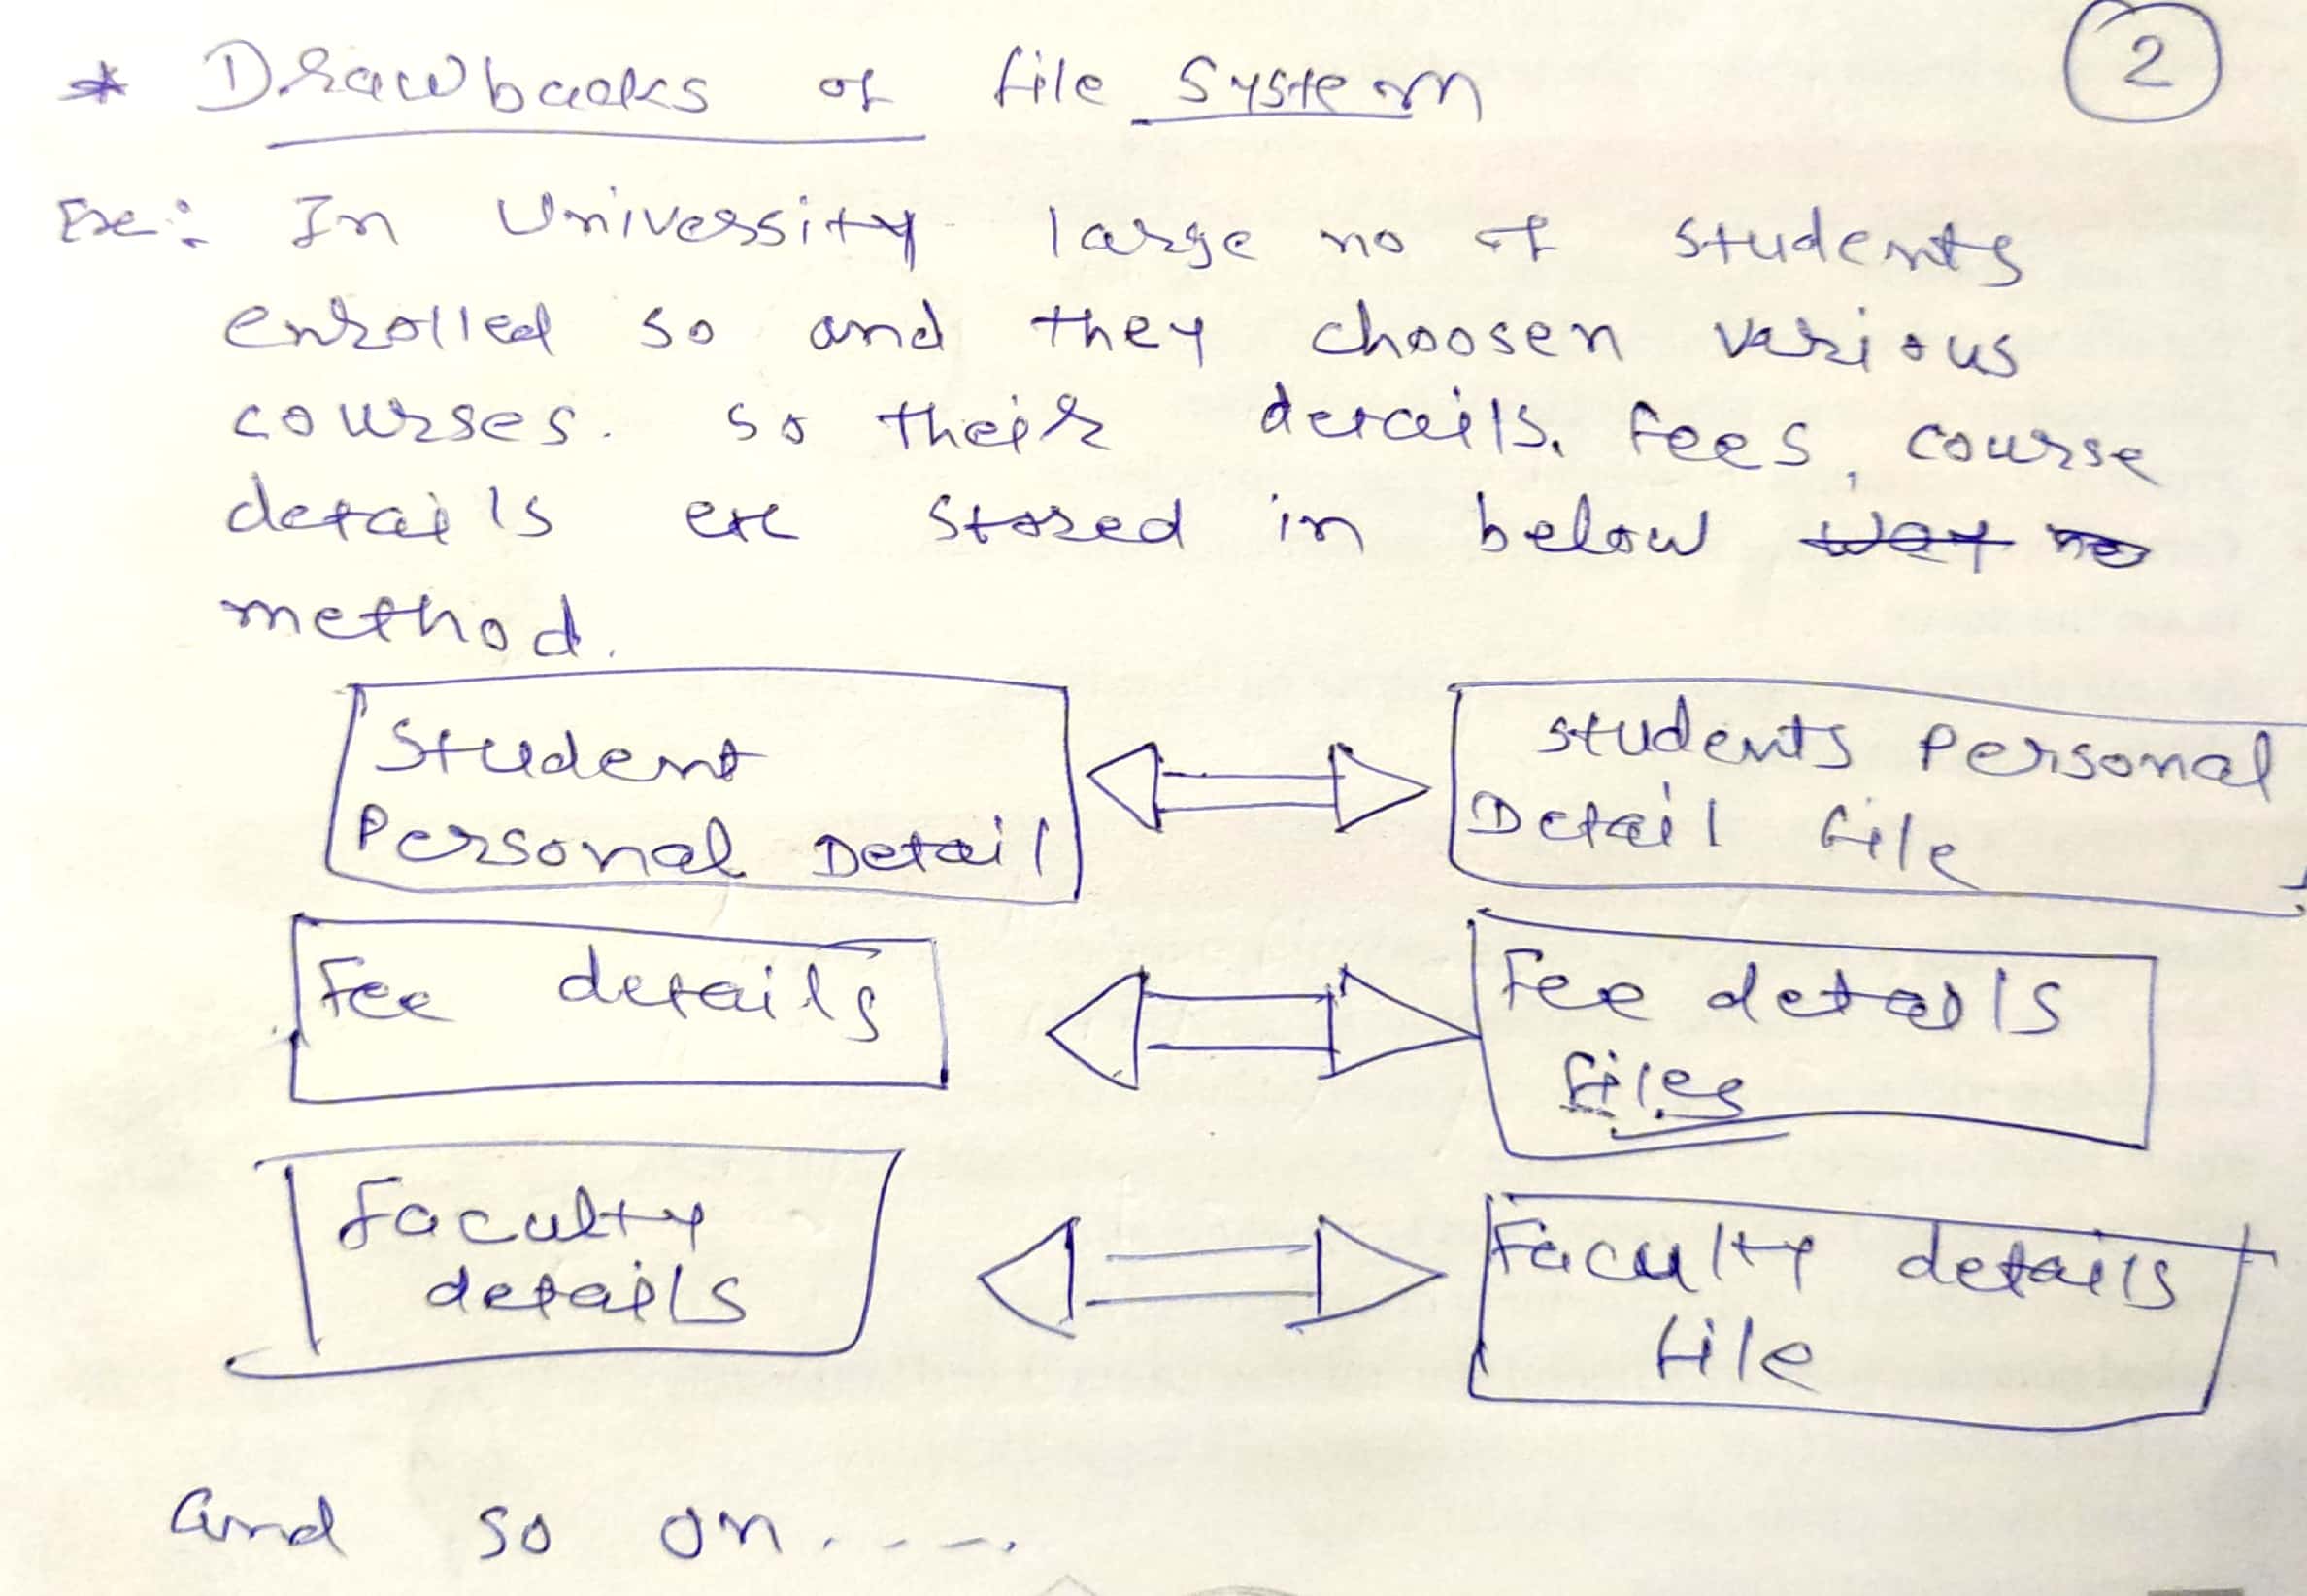 * Drawbacks of file System
2
Ex:- In University large no of students
enrolled so and they choosen various
courses. so their details. Fees, course
details etc stored in below way me
method.
Student
Personal Detail
students Personal
Detail file
Fee details
Fee details
files
Faculty
details
Faculty details
file
and so on.....